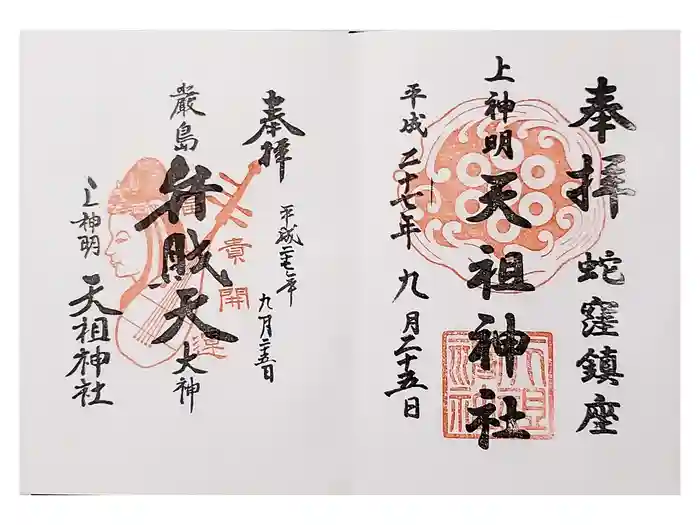 奉拝 蛇窪鎮座
上神明 天祖神社
平成二十七年 九月二十五日
奉拝
平成二十七年 九月二十五日
厳島 弁財天 大神
上神明 天祖神社
貴
開
運
天祖神社